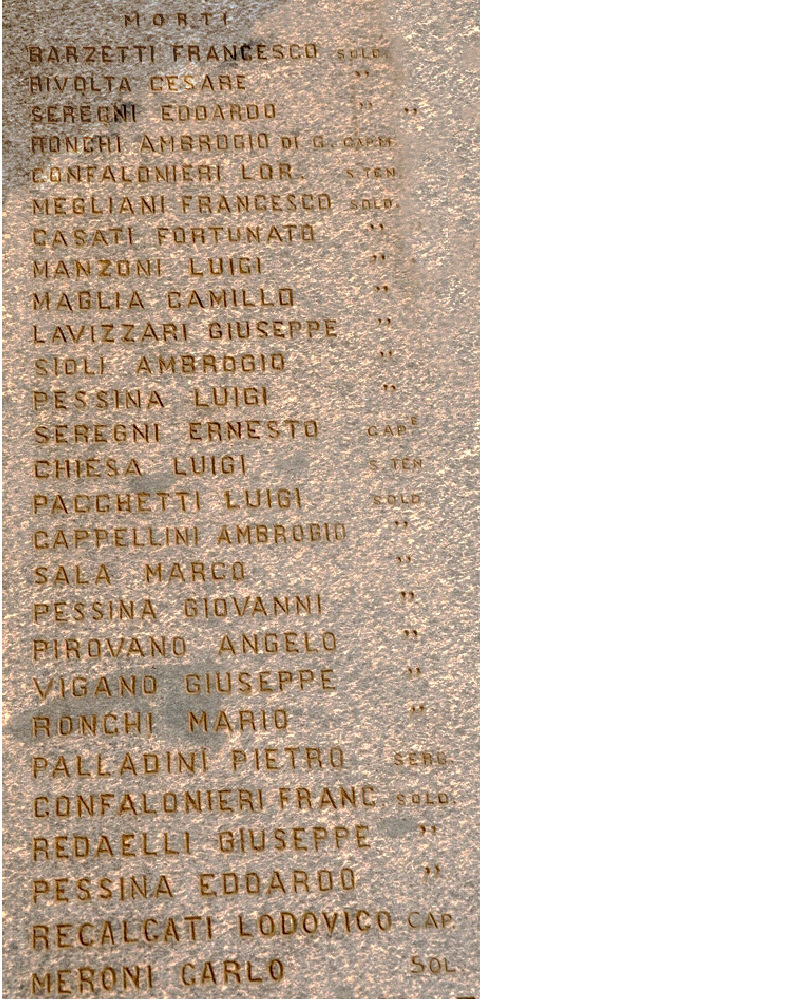 MORTI
BARZETTI FRANCESCO SOLD.
RIVOLTA CESARE "
SEREGNI EDOARDO " "
RONCHI AMBROGIO DI G. CAP.M.
CONFALONIERI LOR. S.TEN.
MEGLIANI FRANCESCO SOLD.
CASATI FORTUNATO "
MANZONI LUIGI "
MAGLIA CAMILLO "
LAVIZZARI GIUSEPPE "
SIOLI AMBROGIO "
PESSINA LUIGI "
SEREGNI ERNESTO CAP.E
CHIESA LUIGI S.TEN
PACCHETTI LUIGI SOLD.
CAPPELLINI AMBROGIO "
SALA MARCO "
PESSINA GIOVANNI "
PIROVANO ANGELO "
VIGANÒ GIUSEPPE "
RONCHI MARIO "
PALLADINI PIETRO SERG.
CONFALONIERI FRANC. SOLD.
REDAELLI GIUSEPPE "
PESSINA EDOARDO "
RECALCATI LODOVICO CAP.
MERONI CARLO SOL.